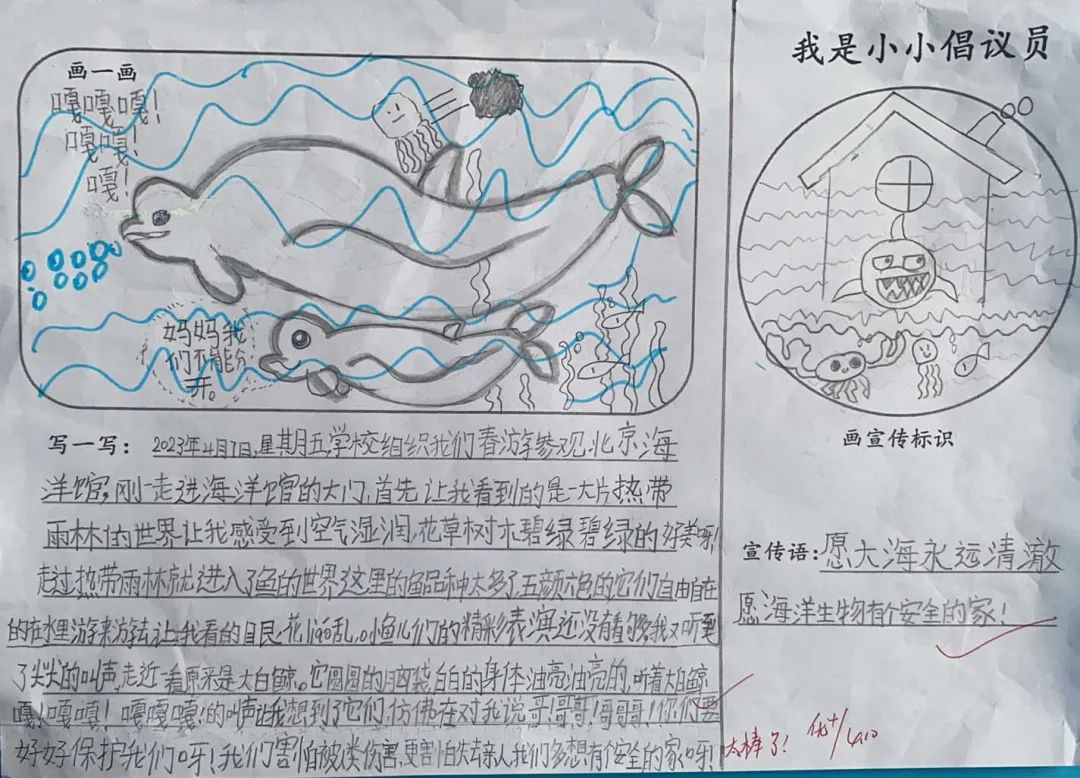 画一画
嘎嘎嘎!
嘎嘎!
嘎!
妈妈我
们不能分
开。
写一写: 2023年4月7日,星期五,学校组织我们春游参观北京海
洋馆,刚一走进海洋馆的大门,首先让我看到的是一大片热带
雨林的世界让我感受到空气湿润,花草树木碧绿碧绿的好美呀!
走过热带雨林就进入了鱼的世界这里的鱼品种太多了五颜六色的它们自由自在
的在水里游来游去,让我看的目艮花 乱。小鱼儿们的精彩表演还没有看够我又听到
了尖尖的叫声,走近一看原来是大白鲸。它圆圆的脑袋白白的身体油亮油亮的,听着大白鲸
嘎!嘎嘎!嘎嘎嘎!的叫声让我想到了它们仿佛在对我说哥!哥哥!哥哥哥!你们要
好好保护我们呀!我们害怕被 类伤害,更害怕失去亲人我们多想有个安全的家呀!
我是小小倡议员
画宣传标识
宣传语:愿大海永远清澈
愿海洋生物有个安全的家!
太棒了! 优+ 4.10